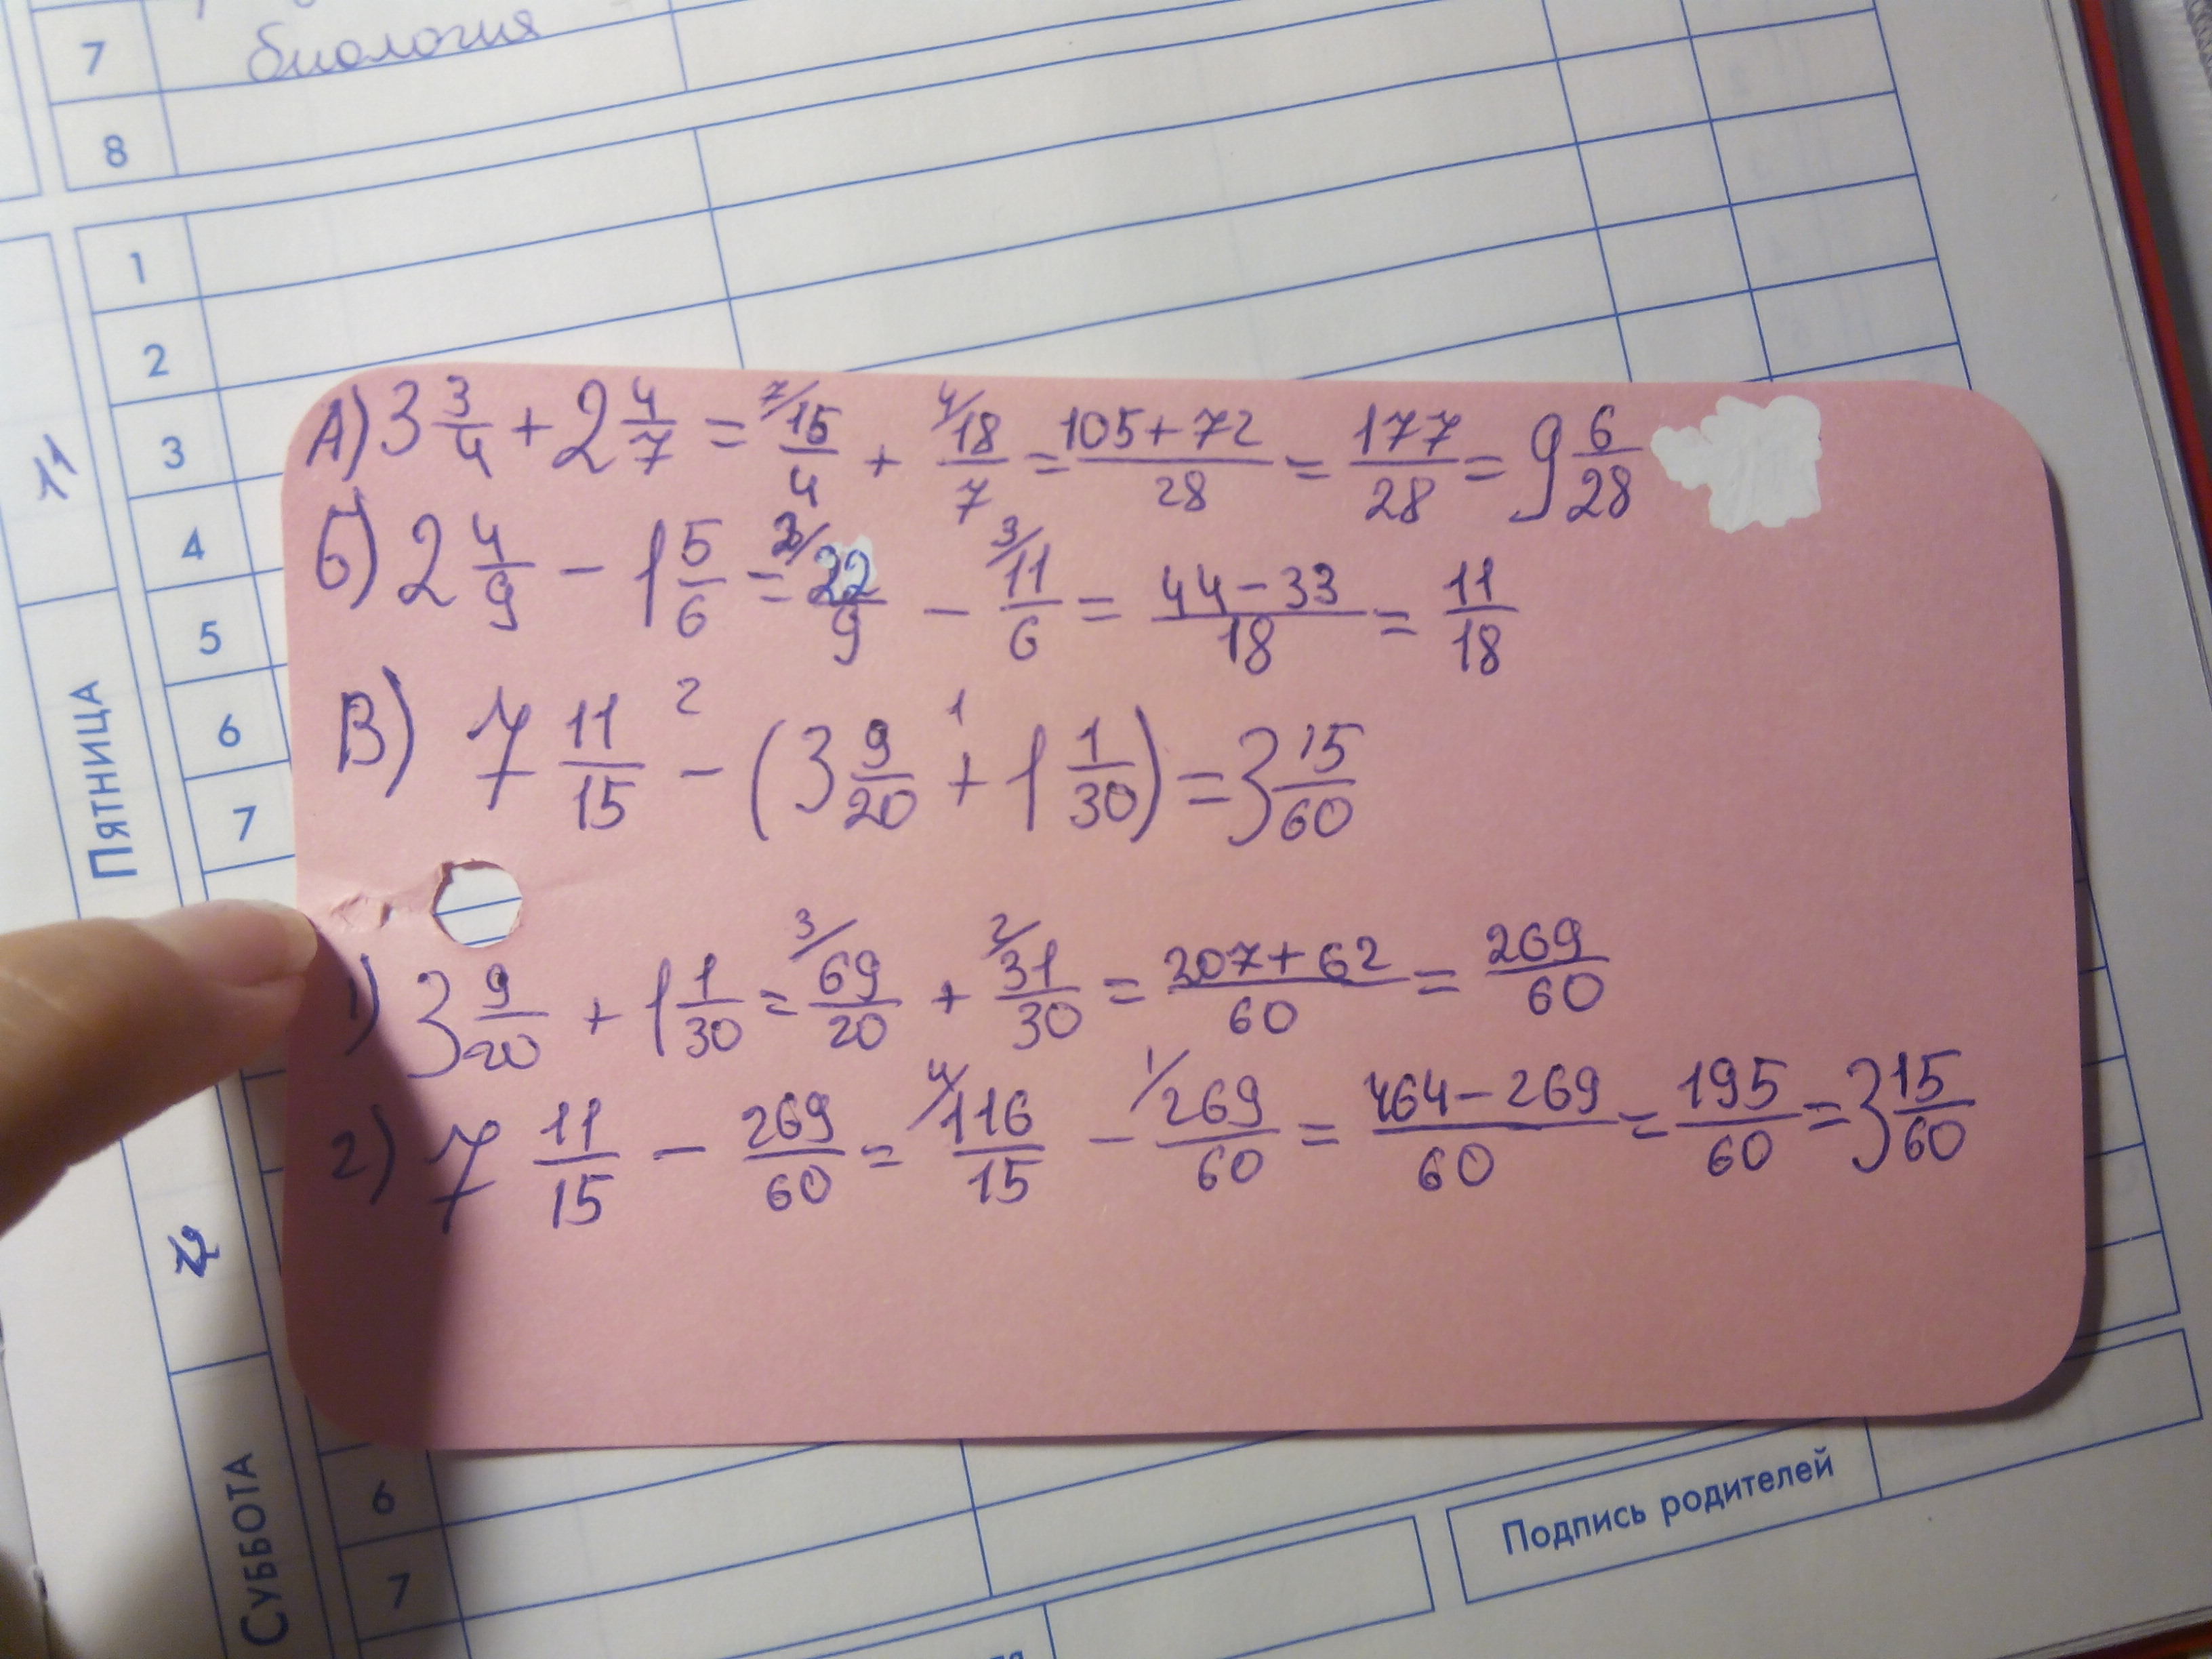 7 биология
8
1
2
3
4
5
6
7
11
ПЯТНИЦА
А) 3 3/4 + 2 4/7 = 7/ 15/4 + 4/ 18/7 = 105+72/28 = 177/28 = 9 6/28
Б) 2 4/9 - 1 5/6 = 2/ 22/9 - 3/ 11/6 = 44-33/18 = 11/18
2 1
В) 7 11/15 - (3 9/20 + 1 1/30) = 3 15/60
1) 3 9/20 + 1 1/30 = 3/ 69/20 + 2/ 31/30 = 207+62/60 = 269/60
2) 7 11/15 - 269/60 = 4/ 116/15 - 1/ 269/60 = 464-269/60 = 195/60 = 3 15/60
СУББОТА
6
7
Подпись родителей